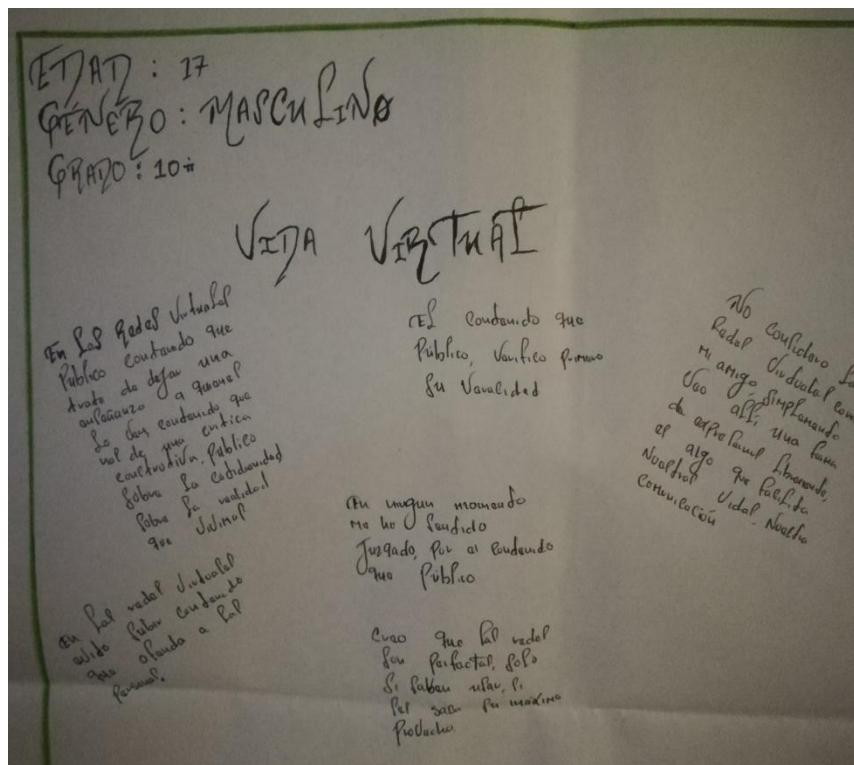 EDAD: 17
GÉNERO: MASCULINO
GRADO: 10
VIDA VIRTUAL
En las Redes Virtuales
Público contenido que
trate de dejar una
enseñanza a quienes
lo ven, contenido que
nos de una critica
constructiva. Publico
sobre la cotidianidad
sobre la realidad
que vivimos
En las redes virtuales
evito subir contenido
que ofenda a las
personas.
El contenido que
Público, verifico primero
su veracidad
En ningun momento
me he sentido
Juzgado, por el contenido
que Público
Creo que las redes
son perfectas, solo
si saben usar, si
les saca su maximo
Provecho
No considero las
Redes Virtuales como
mi amigo, simplemente
veo allí una forma
de expresarme libremente,
es algo que facilita
Nuestras vidas, Nuestra
Comunicación